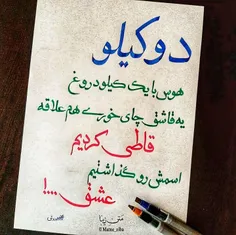 دو کیلو
هوس با یک کیلو دروغ
یه قاشق چای خوری هم علاقه
قاطی کردیم
اسمش رو گذاشتیم
عشق ....!
متن زیبا
@Matne_ziba